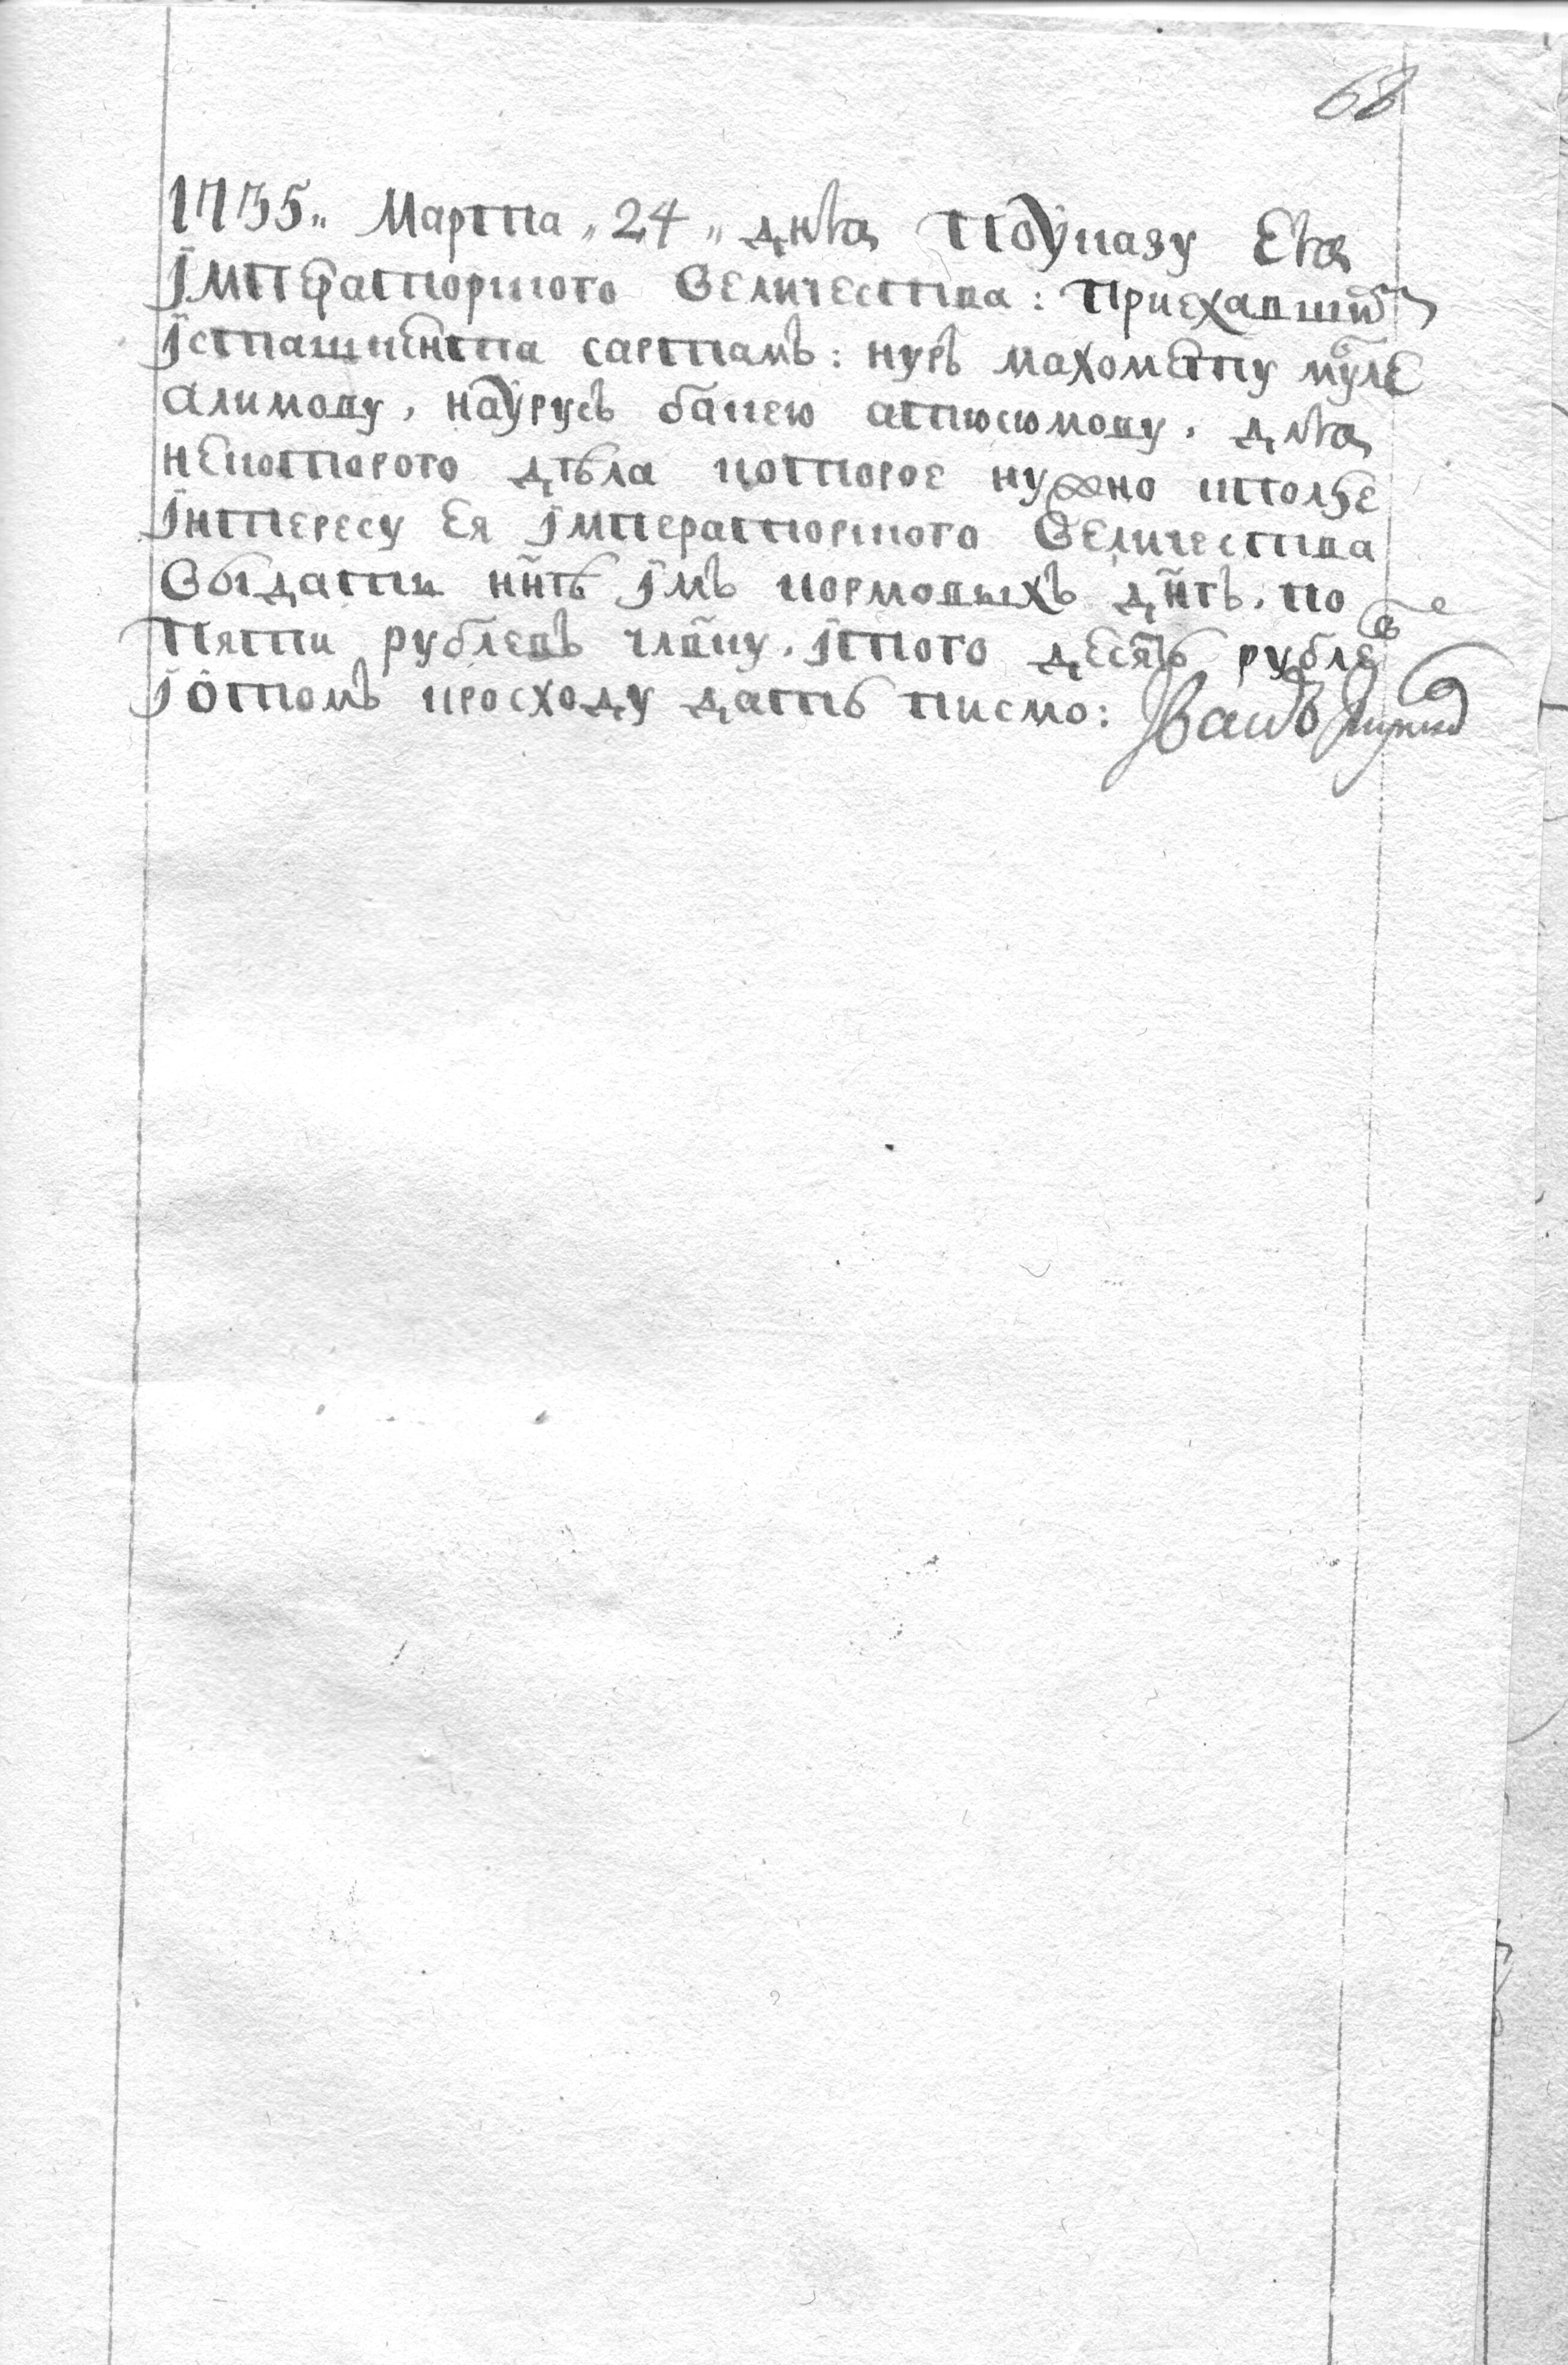 68
1735„ Марта „24„ дня поуказу Ея
Імператорского Величества: приехавшим
Істашкента сартамъ: нуръ махомету мулѣ
алимову, наурусъ бакею атюсюмову, для
некоторого дѣла которое нужно кползе
Інтересу Ея Імператорского Величества
Выдать ннѣ Імъ кормовыхъ днгъ, по
пяти рублевъ члвку, Ітого десять рублев
Іотомъ кросходу дать писмо: Іванъ